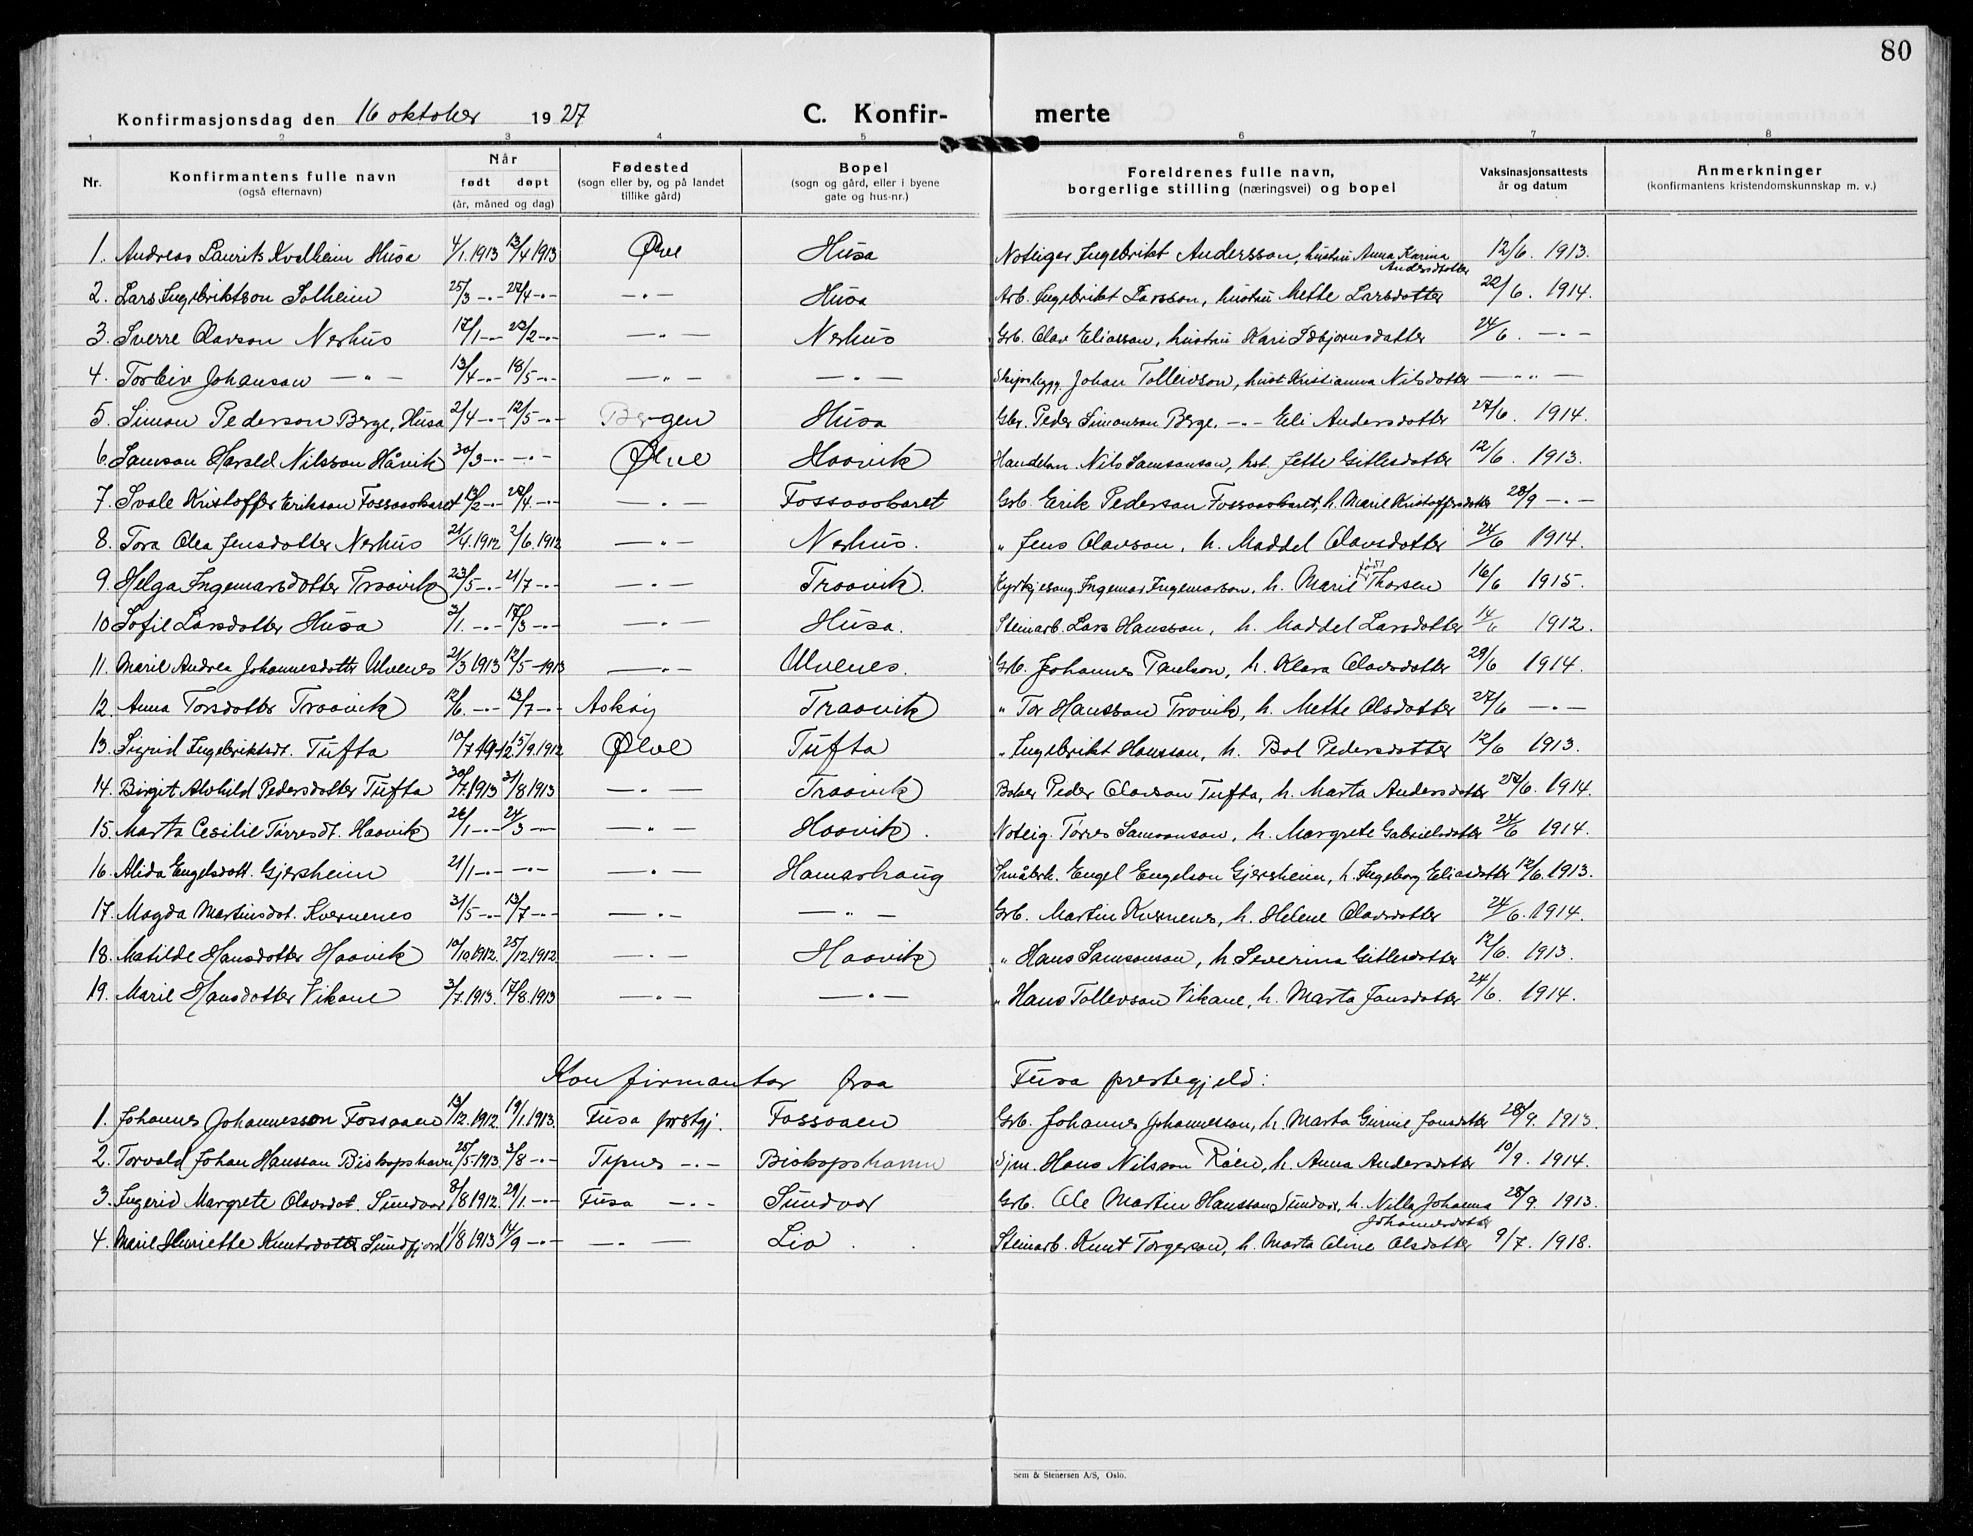 80
Konfirmasjonsdag den 16 oktober 1927 C. Konfir- merte
1 2 3 4 5 6 7 8
Nr. Konfirmantens fulle navn (også efternavn) Når født døpt (år, måned og dag) Fødested (sogn eller by, og på landet tillike gård) Bopel (sogn og gård, eller i byene gate og hus-nr.) Foreldrenes fulle navn, borgerlige stilling (næringsvei) og bopel Vaksinasjonsattests år og datum Anmerkninger (konfirmantens kristendomskunnskap m. v.)
1. Andreas Laurits Kvalheim Husa 4/1 1913 13/4 1913 Ølve Husa Noteigar Ingebrikt Andersson, hustru Anna Karina Andersdotter 12/6. 1913.
2. Lars Ingebriktson Solheim 25/3 -„- 27/4 -„- -„- Husa Arb. Ingebrikt Larsson, hustru Mette Larsdotter 22/6. 1914.
3. Sverre Olavson Nerhus 17/1 -„- 23/2 -„- -„- Nerhus Grb. Olav Eliasson, hustru Kari Isbjørnsdatter 24/6. -„-
4. Torleiv Johanson -„- 13/4 -„- 18/5 -„- -„- -„- Skipsbygg. Johan Tolleivson, hust Kristianna Nilsdotter -„-
5. Simon Pederson Berge, Husa 2/4 -„- 12/5 -„- Bergen Husa Gbr. Peder Simonson Berge. -„- Eli Andersdotter 27/6. 1914.
6. Samson Harald Nilsson Håvik 30/3 -„- -„- Ølve Haavik Handelsm. Nils Samsonson, hst. Jette Gitlesdotter 12/6. 1913.
7. Svale Kristoffer Erikson Fossaabaret 13/2 -„- 20/4 -„- -„- Fossaabaret Grb. Erik Pederson Fossaabaret, h. Marie Kristoffersdotter 28/9 -„-
8. Tora Olea Jensdotter Nerhus 21/4. 1912 2/6. 1912 -„- Nerhus. „ Jens Olavson, h. Maddel Olavsdotter 24/6 1914.
9. Helga Ingemarsdotter Traavik 23/5 -„- 21/7 -„- -„- Traavik. Kyrkjesong. Ingemar Ingemarson, h. Marie født Thorsen 16/6 1915.
10 Sofie Larsdotter Husa 3/1. -„- 17/3 -„- -„- Husa. Steinarb. Lars Hansson, h. Maddel Larsdotter 14/6 1912.
11. Marie Andrea Johannesdotter Ulvenes 21/3 1913 12/5 -1913 -„- Ulvenes. Grb. Johannes Paulson, h. Klara Olavsdotter 29/6 1914.
12. Anna Torsdotter Traavik 12/6. -„- 13/7 -„- Askøy Traavik „ Tor Hansson Trovik, h. Mette Olsdotter 27/6 -„-
13. Sigrid Ingebriktsdt. Tufta 10/7 1912 15/9. 1912 Ølve Tufta „ Ingebrikt Hansson, h. Bol Pedersdotter 12/6 1913.
14. Birgit Alvhild Pedersdotter Tufta 30/7. 1913 31/8 1913 -„- Traavik Baker Peder Olavson Tufta, h. Marta Andersdotter 27/6. 1914.
15. Marta Cesilie Tørresdt. Haavik 26/1 -„- 24/3 -„- -„- Haavik. Noteig. Tørres Samsonson, h. Margrete Gabrielsdotter 24/6 1914.
16. Alida Engelsdott. Gjersheim 21/1 -„- -„- -„- Hamarhaug Småbrk. Engel Engelson Gjersheim, h. Ingeborg Eliasdotter 12/6. 1913.
17. Magda Martinsdot. Kvernenes 31/5 -„- 13/7 -„- -„- -„- Grb. Martin Kvernenes, h. Helene Olavsdotter 24/6. 1914.
18. Matilde Hansdotter Haavik 10/10 1912. 25/12 1912 -„- Haavik „ Hans Samsonson, h. Severina Gitlesdotter 12/6. 1913.
19. Marie Hansdotter Vikane 3/7. 1913. 17/8. 1913 -„- -„- „ Hans Tollevson Vikane, h. Marta Jonsdotter 24/6. 1914.
Konfirmantar fraa Fusa prestegjeld:
1. Johannes Johannesson Fossaaen 13/12. 1912. 19/1. 1913. Fusa prstgj. Fossaaen Grb. Johannes Johannesson, h. Marta Gurine Jonsdotter 28/9. 1913.
2. Torvald Johan Hansson Biskopshavn 25/5 1913. 3/8 -„- -„- Biskopshamn Sjm. Hans Nilsson Røen, h. Anna Andersdotter 10/9. 1914.
3. Ingerid Margrete Olavsdot. Sundvor 8/8 1912. 29/1. -„- Fusa -„- Sundvor Grb. Ole Martin Hansson Sundvor, h. Nilla Johanna Johannesdotter 28/9. 1913.
4. Marie Henriette Knutsdotter Sundfjord 1/8 1913 14/9 -„- -„- Lio Steinarb. Knut Torgerson, h. Marta Oline Olsdotter 9/7. 1918.
Sem & Stenersen A/S, Oslo.